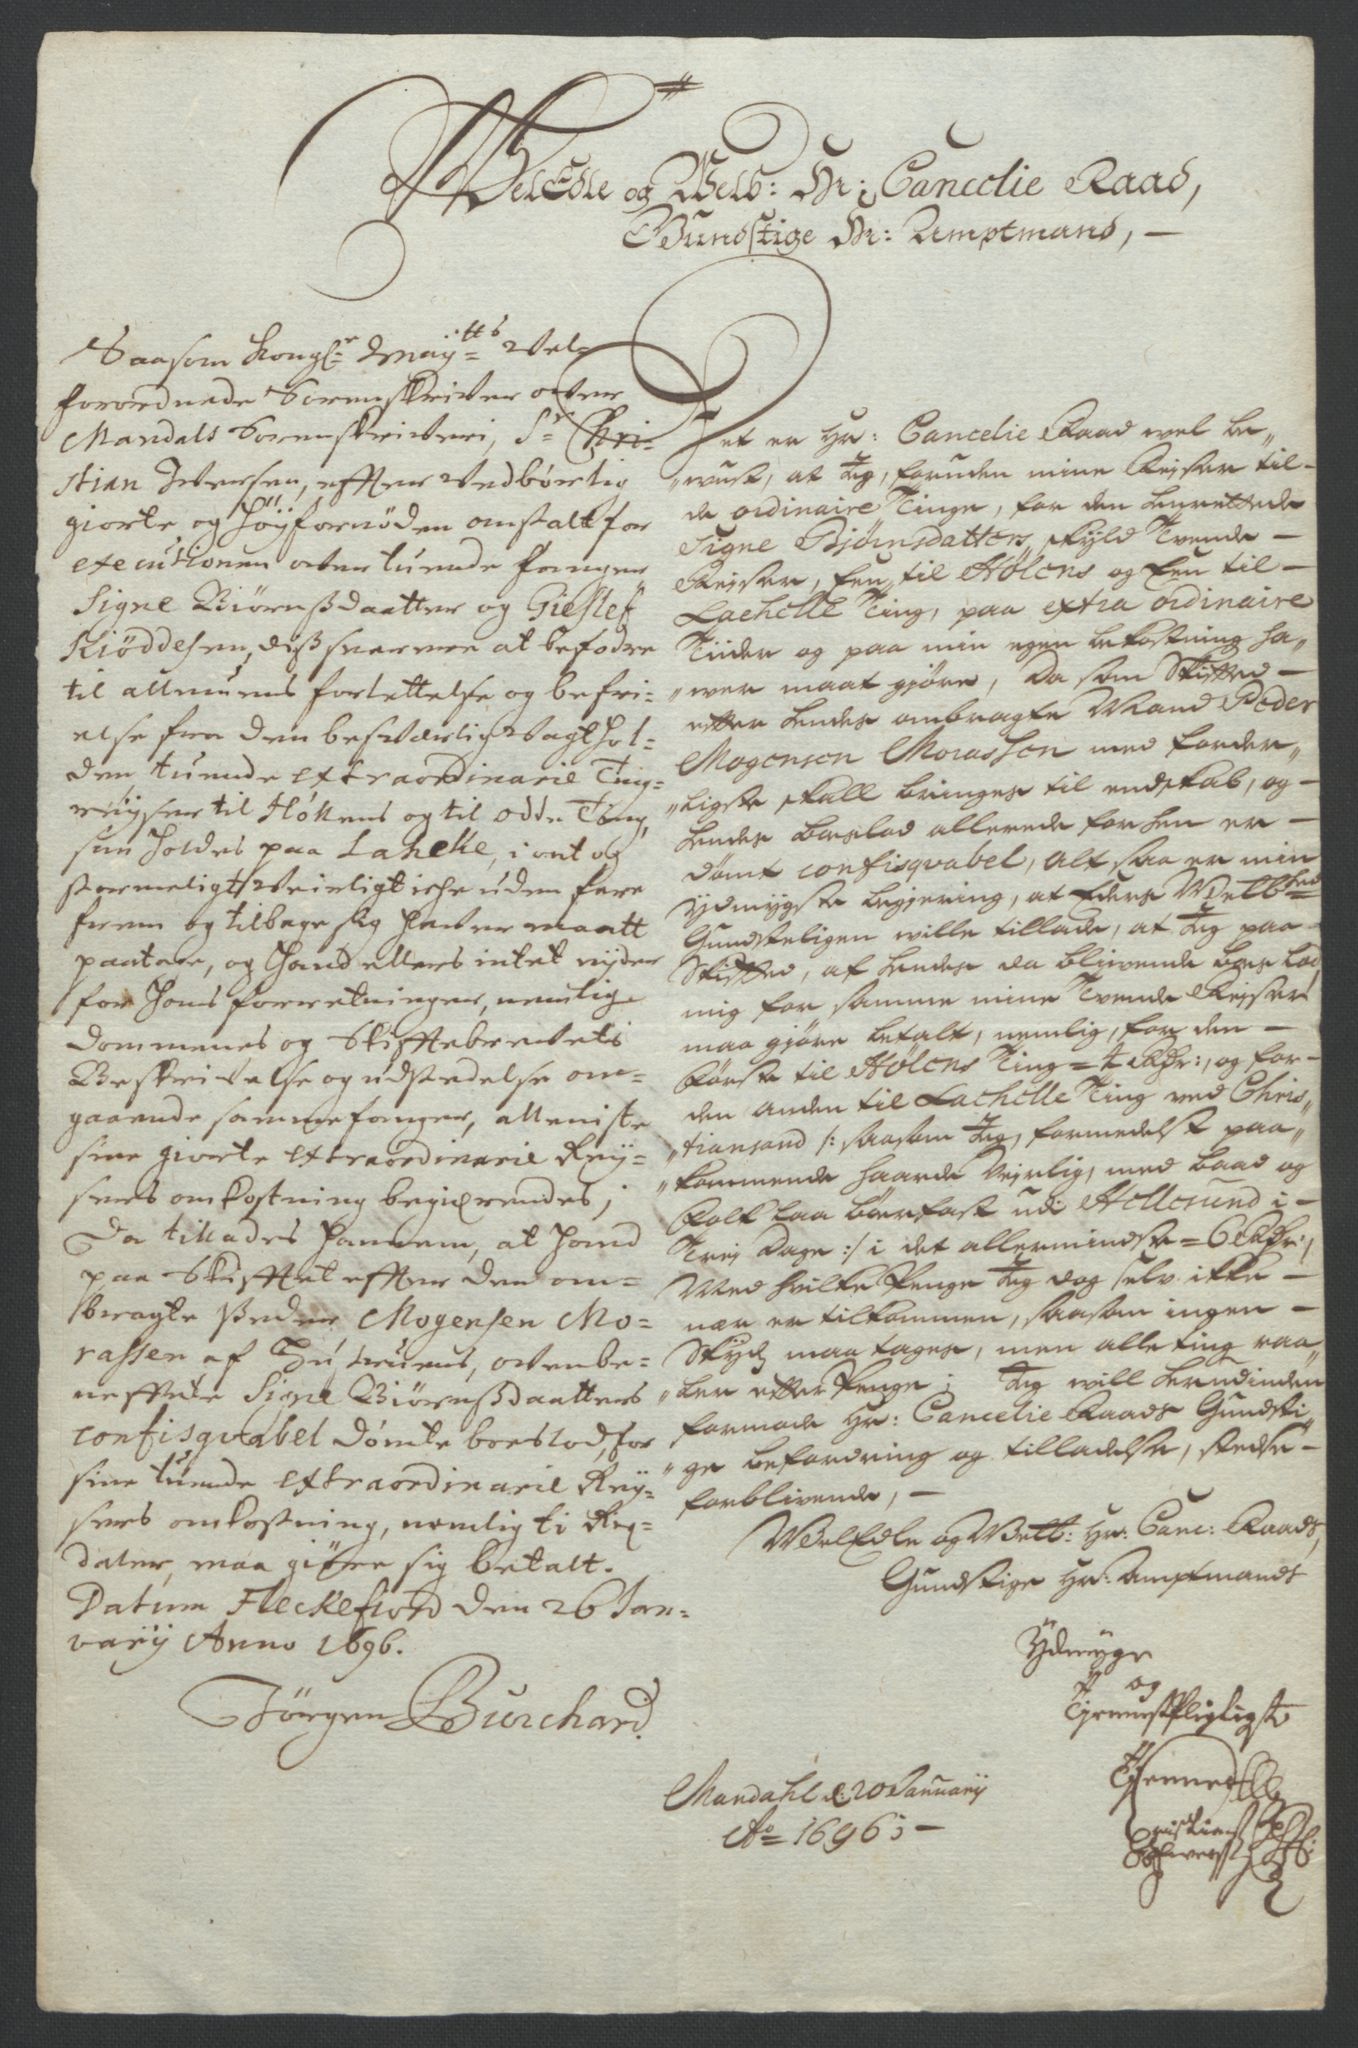 WelEdle og Welb: Hr: Cancelie Raad,
Gunstige Hr: Amptmand, —
Saasom Kongl: Mayts Vel-
forordnede Sorenskriver over
Mandals Sorenskriveri, Sr Chri-
stian Iversen, effter vedbørlig
giorte og Høyfornøden anstalt for
executionen over tuende fanger
Signe Biørnssdaatter og Giesle
Kiøddesen, diss snarere at befodre
til allmuens forlettelse og befri-
else fra den besværlig vagthol-
den tuende extraordinarie Ting-
reyser til Hølens og til Odde Ting,
som holdes paa Lahelle, i ont og
stormeligt veirligt iche uden fare
frem og tilbage sig haver maatt
paatage, og hand ellers intet nyder
for hans forretninger, nemlig
dommenes og Skifftebrevets
Beskrivelse og udstedelse om-
gaaende samme fanger, alleniste
sine giorte extraordinarie Rey-
sers omkostning begierendes;
Da tillades hannem, at hand
paa Skifftet effter den om-
bragte Peder Mogensen Mo-
rassen af hustruens, ovenbe-
neffnte Signe Biørnssdaatters
confisqvabel dømte boeslod, for
sine tuende extraordinarie Rey-
sers omkostning, nemlig ti Rix-
daler, maa giøre sig betalt.
Datum Fleckefiord den 26 Jan-
varij Anno 1696.
Jørgen Burchard
Det er Hr: Cancelie Raad vel be-
wust, at Jeg, foruden mine Rejser til-
de ordinaire Tinge, for den henrettede
Signe Bjørnsdatters skyld Tvende —
Rejser, Een til Hølens og Een til —
Lachelle Ting, paa extra ordinaire
Tiider og paa min egen bekostning ha-
wer maat gjøre, Da som Skifted —
efter hendes ombragte Mand Peder
Mogensen Morassen med forder-
ligste skall bringes til endskab, og —
hendes boeslod allerede forhen er —
dømt confisqvabel, alt saa er min
ydmygste begiering, at Eders Welbhed
Gunsteligen wille tillade, at Jeg paa
Skifted, af hendes da blivende boeslod
mig for samme mine Tvende Rejser
maa gjøre betalt, nemlig, for den —
første til Hølens Ting = 4 Rdr:, og for-
den anden til Lachelle Ting ved Chris-
tiansand /: saasom Jeg, formedelst paa-
kommende haarde Vejrlig, med baad og
Folk laa værfast udi Hellesund i —
Trej Dage :/ i det allermindste = 6 Rdr:,
Med hvilke Penge Jeg dog selv ikke —
nær er tilkommen, saasom ingen —
Skyds maa tages, men alle ting
efter Penge; Jeg will herudinden
formode Hr: Cancelie Raads Gunsti-
ge befordring og tilladelse, stedse —
forblivende, —
WelEdle og Welb: Hr: Canc: Raads,
Gunstige Hr: Amptmands
Ydmyge
og
Tjenestpligtigste
Tjener
Christian Iversen
Mandahl d: 20 January
Ao 1696; —